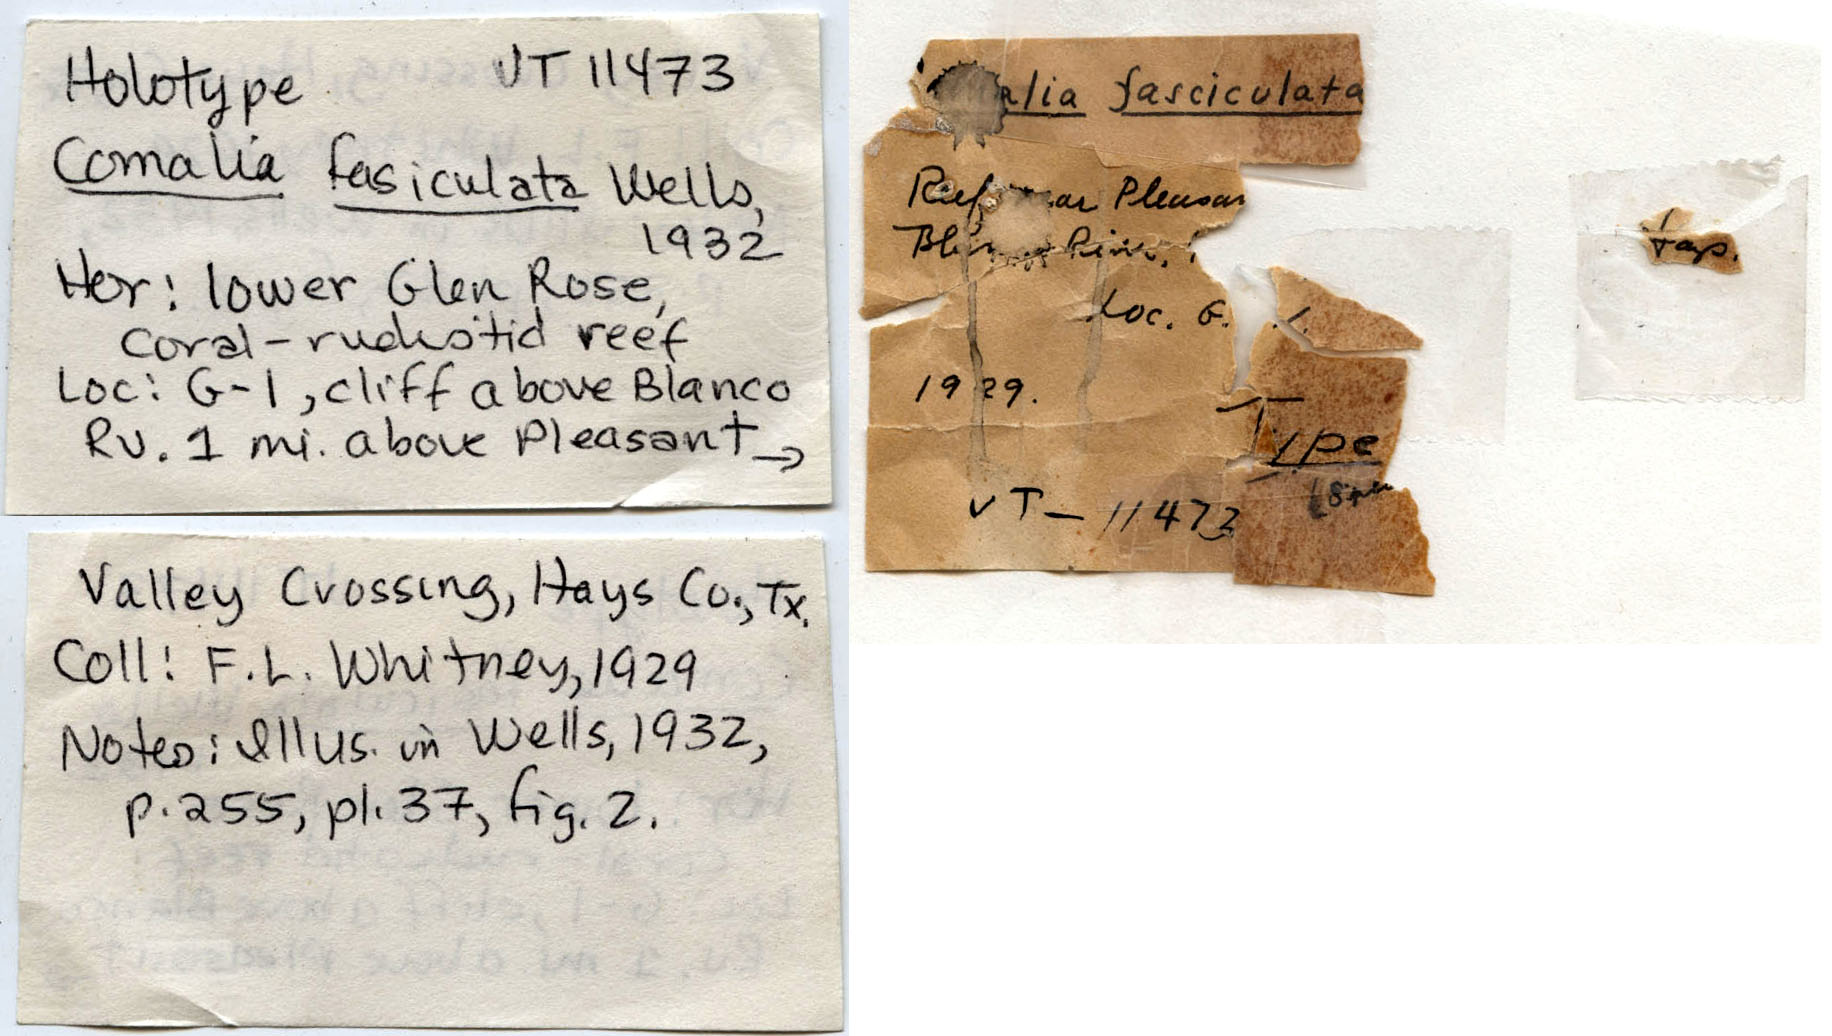 Holotype UT 11473
Comalia fasiculata Wells,
1932
Hor: lower Glen Rose,
coral-rudistid reef
Loc: G-1, cliff above Blanco
Rv. 1 mi. above Pleasant →
Valley Crossing, Hays Co., Tx.
Coll: F.L. Whitney, 1929
Notes: Illus. in Wells, 1932,
p. 255, pl. 37, fig. 2.
alia fasciculata
Reef ar Pleasan
Bl River,
Loc. G. 1.
1929.
Type
UT-11473